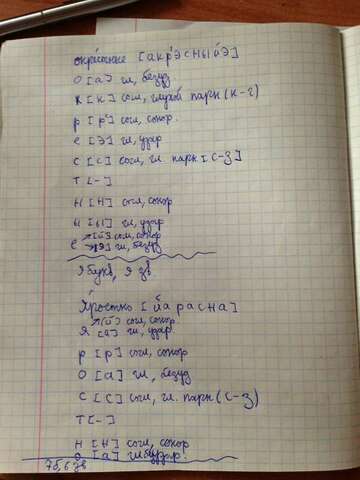 окрестные [акр'эсный'э]
о [а] гл, безуд
к [к] согл, глухой парн (к-г)
р [р'] согл, сонор.
е [э] гл, удар
с [с] согл, гл. парн [с-з]
т [-]
н [н] согл, сонор
ы [ы] гл, удар
е [й'] согл, сонор
[э] гл, безуд
9 букв, 9 зв.
Яростно [йарасна]
[й'] согл, сонор.
я [а] гл, удар.
р [р] согл, сонор
о [а] гл, безуд
с [с] согл, гл. парн (с-з)
т [-]
н [н] согл, сонор
о [а] гл, безудар.
7б, 6 зв